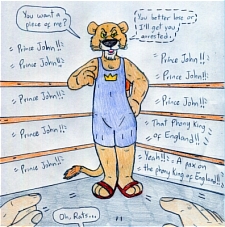 You want a
piece of me?
You better lose or
I'll get you
arrested.
Prince John!!
Prince John!!
Prince John!!
Prince John!!
Prince John!!
Prince John!!
Prince John!!
Prince John!!
Prince John!!
That Phony King
of England!!
Yeah!! A pax on
the phony King of England!!
Oh, Rats...